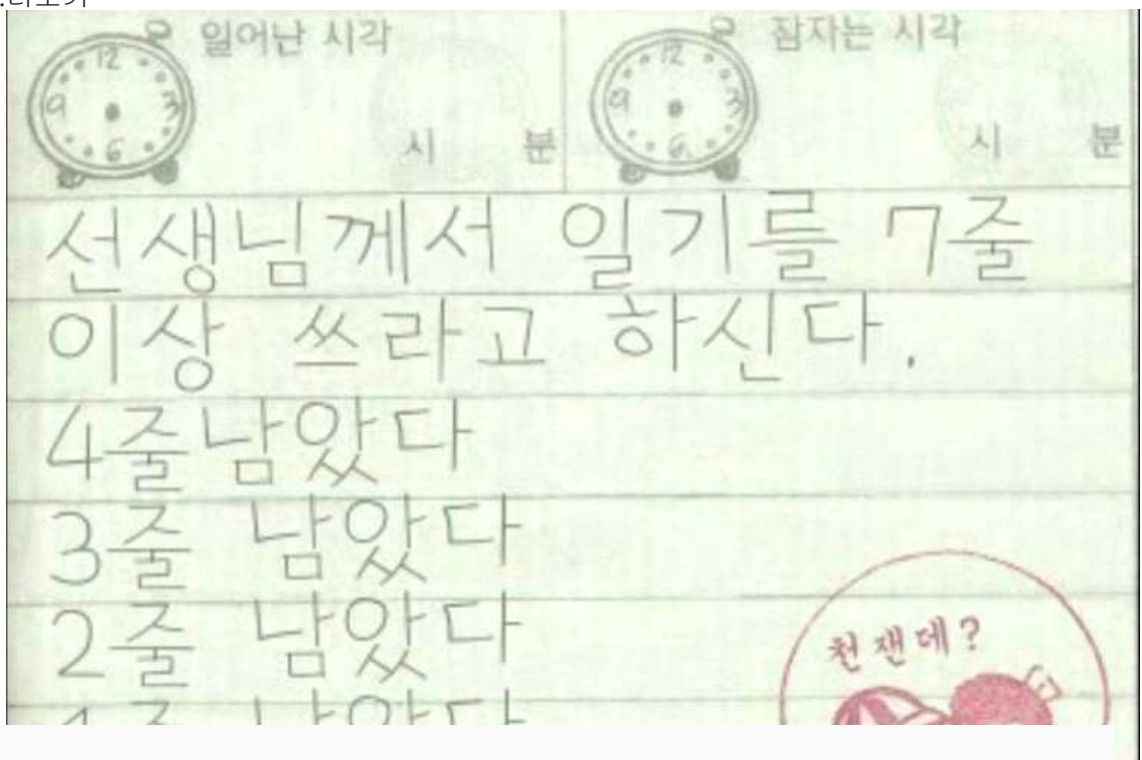 일어난 시각
12
9
3
6
시 분
잠자는 시각
12
9
3
6
시 분
선생님께서 일기를 7줄
이상 쓰라고 하신다.
4줄남았다
3줄 남았다
2줄 남았다
1줄 남았다
천잰데?